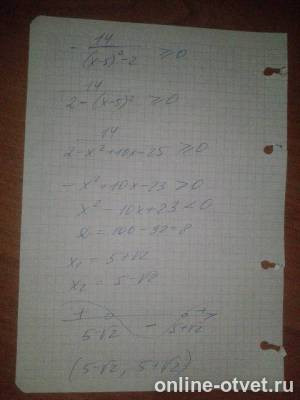 - 14/(x-5)²-2 ≥ 0
14/2-(x-5)² ≥ 0
14/2-x²+10x-25 ≥ 0
-x²+10x-23 > 0
x²-10x+23 < 0
D = 100-92=8
x₁ = 5+√2
x₂ = 5-√2
+ - +
5-√2 5+√2
(5-√2, 5+√2)
online-otvet.ru